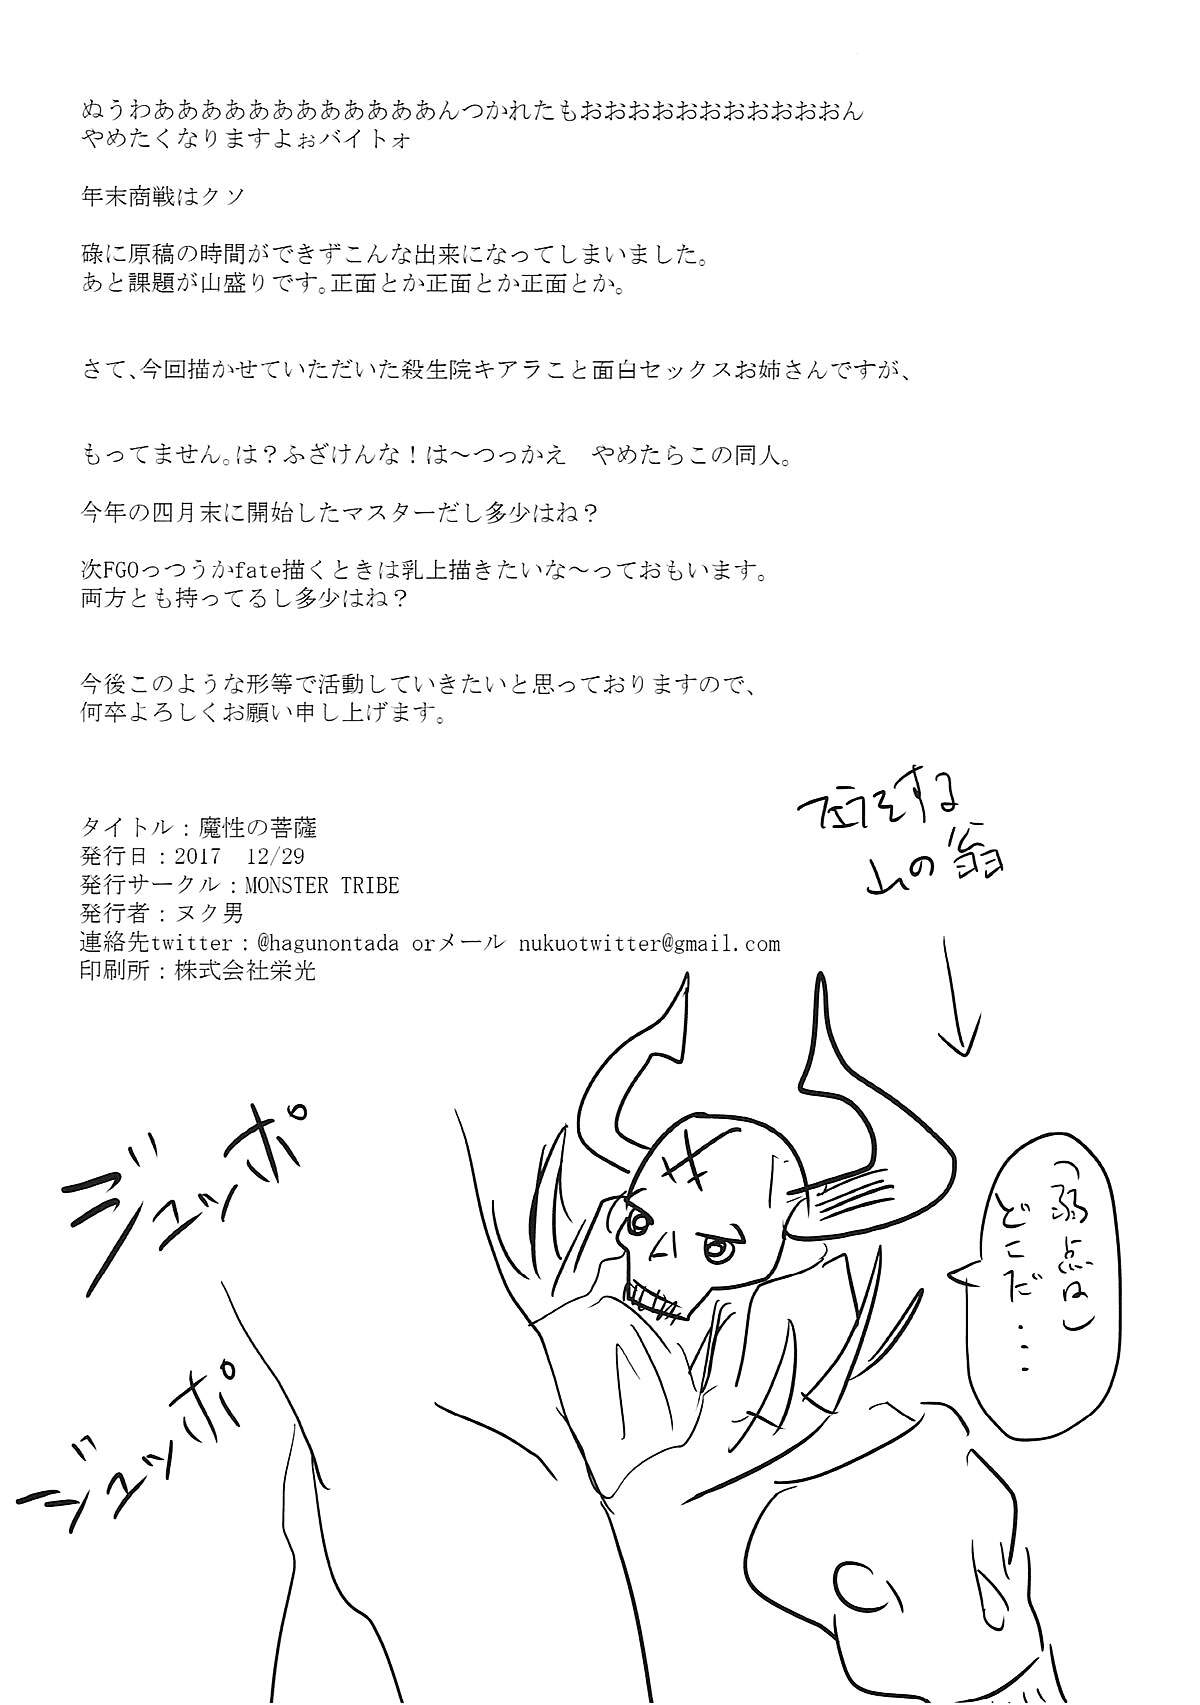 ぬうわあああああああああああああんつかれたもおおおおおおおおおおおおん
やめたくなりますよぉバイトォ
年末商戦はクソ
碌に原稿の時間ができずこんな出来になってしまいました。
あと課題が山盛りです。正面とか正面とか正面とか。
さて、今回描かせていただいた殺生院キアラこと面白セックスお姉さんですが、
もってません。は？ふざけんな！は～つっかえ　やめたらこの同人。
今年の四月末に開始したマスターだし多少はね？
次FGOっつうかfate描くときは乳上描きたいな～っておもいます。
両方とも持ってるし多少はね？
今後このような形等で活動していきたいと思っておりますので、
何卒よろしくお願い申し上げます。
タイトル：魔性の菩薩
発行日：2017　12/29
発行サークル：MONSTER TRIBE
発行者：ヌク男
連絡先twitter：@hagunontada orメール nukuotwitter@gmail.com
印刷所：株式会社栄光
フェラをする
山の翁
(弱点は)
どこだ・・・
ジュッポ
ジュッポ